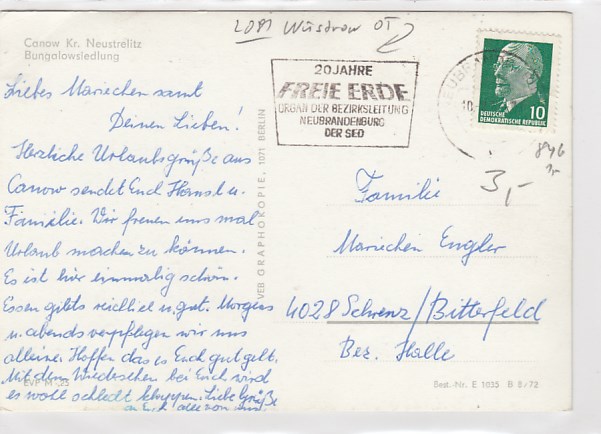 2081 Wustrow OT
Canow Kr. Neustrelitz
Bungalowsiedlung
20 JAHRE
FREIE ERDE
ORGAN DER BEZIRKSLEITUNG
NEUBRANDENBURG
DER SED
10
DEUTSCHE
DEMOKRATISCHE REPUBLIK
846
3,-
Liebes Mariechen samt
Deinen Lieben!
Herzliche Urlaubsgrüße aus
Canow sendet Euch Horst u.
Familie. Wir freuen uns mal
Urlaub machen zu können.
Es ist hier einmalig schön.
Essen gibts reichlich u. gut. Morgens
u. abends verpflegen wir uns
alleine. Hoffen das es Euch gut geht.
Mit dem Wiedersehen bei Euch wird
es wohl schlecht klappen. Liebe Grüße
an Euch alle von uns
VEB GRAPHOKOPIE, 1071 BERLIN
Familie
Mariechen Engler
4028 /Bitterfeld
Bez. Halle
Best.-Nr. E 1035 B 8/72